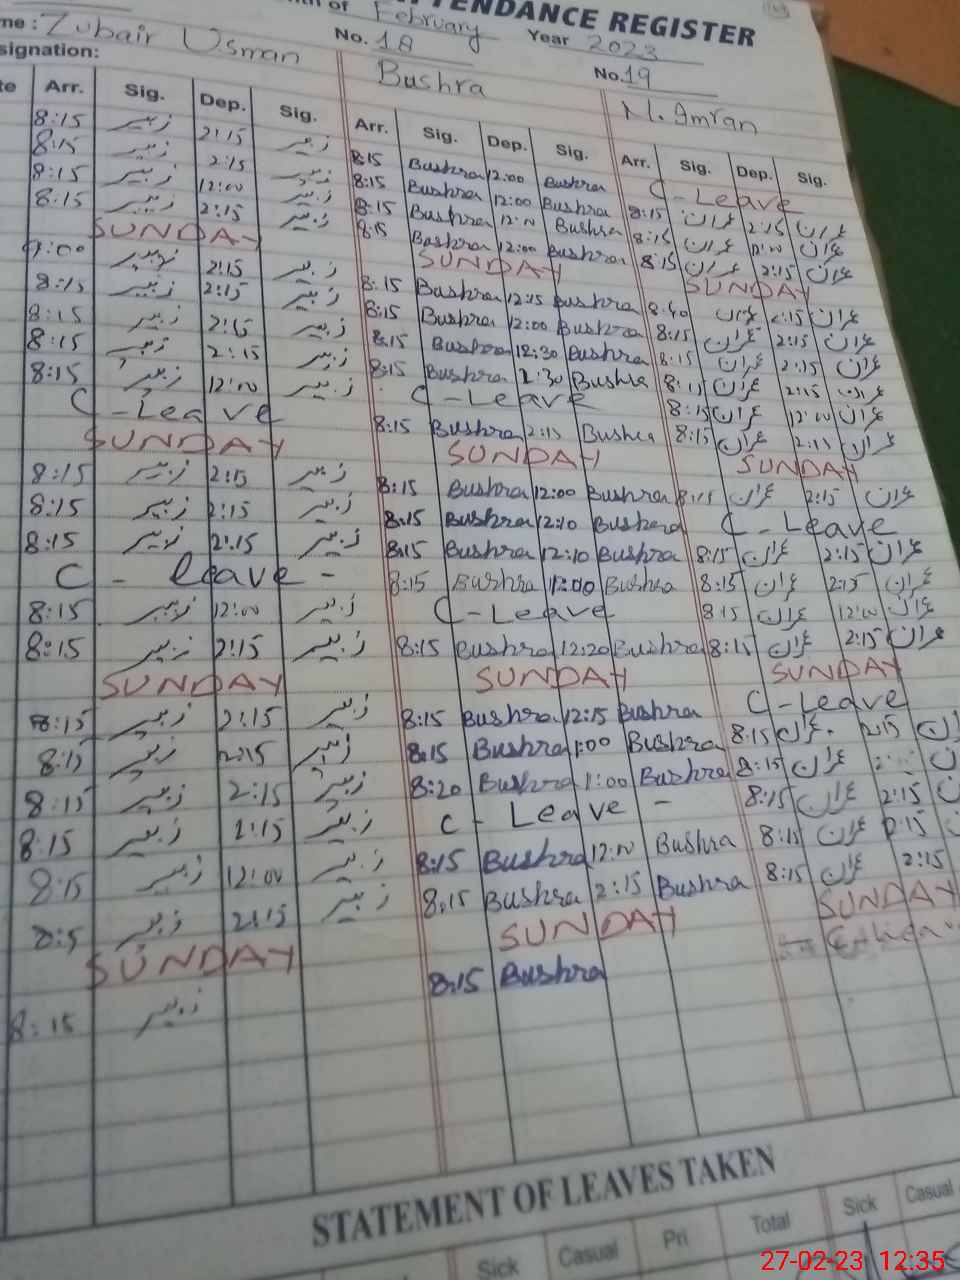 ATTENDANCE REGISTER
of February Year 2023
me: Zubair Usman No. 18 Bushra No. 19 M. Imran
signation:
Arr. Sig. Dep. Sig. Arr. Sig. Dep. Sig. Arr. Sig. Dep. Sig.
8:15 زبیر 2:15 زبیر 8:15 Bushra 12:00 Bushra C-Leave
8:15 زبیر 2:15 زبیر 8:15 Bushra 12:00 Bushra 8:15 عمران 2:15 عمران
8:15 زبیر 12:00 زبیر 8:15 Bushra 12:00 Bushra 8:15 عمران 12:00 عمران
8:15 زبیر 2:15 زبیر 8:15 Bushra 12:00 Bushra 8:15 عمران 2:15 عمران
SUNDAY SUNDAY SUNDAY
9:00 زبیر 2:15 زبیر 8:15 Bushra 12:15 Bushra 8:40 عمران 2:15 عمران
8:15 زبیر 2:15 زبیر 8:15 Bushra 12:00 Bushra 8:15 عمران 2:15 عمران
8:15 زبیر 2:15 زبیر 8:15 Bushra 12:30 Bushra 8:15 عمران 2:15 عمران
8:15 زبیر 2:15 زبیر 8:15 Bushra 2:30 Bushra 8:15 عمران 2:15 عمران
8:15 زبیر 12:00 زبیر C-Leave 8:15 عمران 12:00 عمران
C-Leave 8:15 Bushra 2:15 Bushra 8:15 عمران 2:15 عمران
SUNDAY SUNDAY SUNDAY
8:15 زبیر 2:15 زبیر 8:15 Bushra 12:00 Bushra 8:15 عمران 2:15 عمران
8:15 زبیر 2:15 زبیر 8:15 Bushra 12:10 Bushra C-Leave
8:15 زبیر 2:15 زبیر 8:15 Bushra 12:10 Bushra 8:15 عمران 2:15 عمران
C - leave - 8:15 Bushra 12:00 Bushra 8:15 عمران 2:15 عمران
8:15 زبیر 12:00 زبیر C-Leave 8:15 عمران 12:00 عمران
8:15 زبیر 2:15 زبیر 8:15 Bushra 12:20 Bushra 8:15 عمران 2:15 عمران
SUNDAY SUNDAY SUNDAY
8:15 زبیر 2:15 زبیر 8:15 Bushra 12:15 Bushra C-Leave
8:15 زبیر 2:15 زبیر 8:15 Bushra 1:00 Bushra 8:15 عمران 2:15
8:15 زبیر 2:15 زبیر 8:20 Bushra 1:00 Bushra 8:15 عمران
8:15 زبیر 2:15 زبیر C - Leave - 8:15 عمران 2:15
8:15 زبیر 12:00 زبیر 8:15 Bushra 12:00 Bushra 8:15 عمران
زبیر 2:15 زبیر 8:15 Bushra 2:15 Bushra 8:15 عمران 2:15
SUNDAY SUNDAY SUNDAY
8:15 زبیر 8:15 Bushra
STATEMENT OF LEAVES TAKEN
Sick Casual Pri Total Sick Casual
27-02-23 12:35